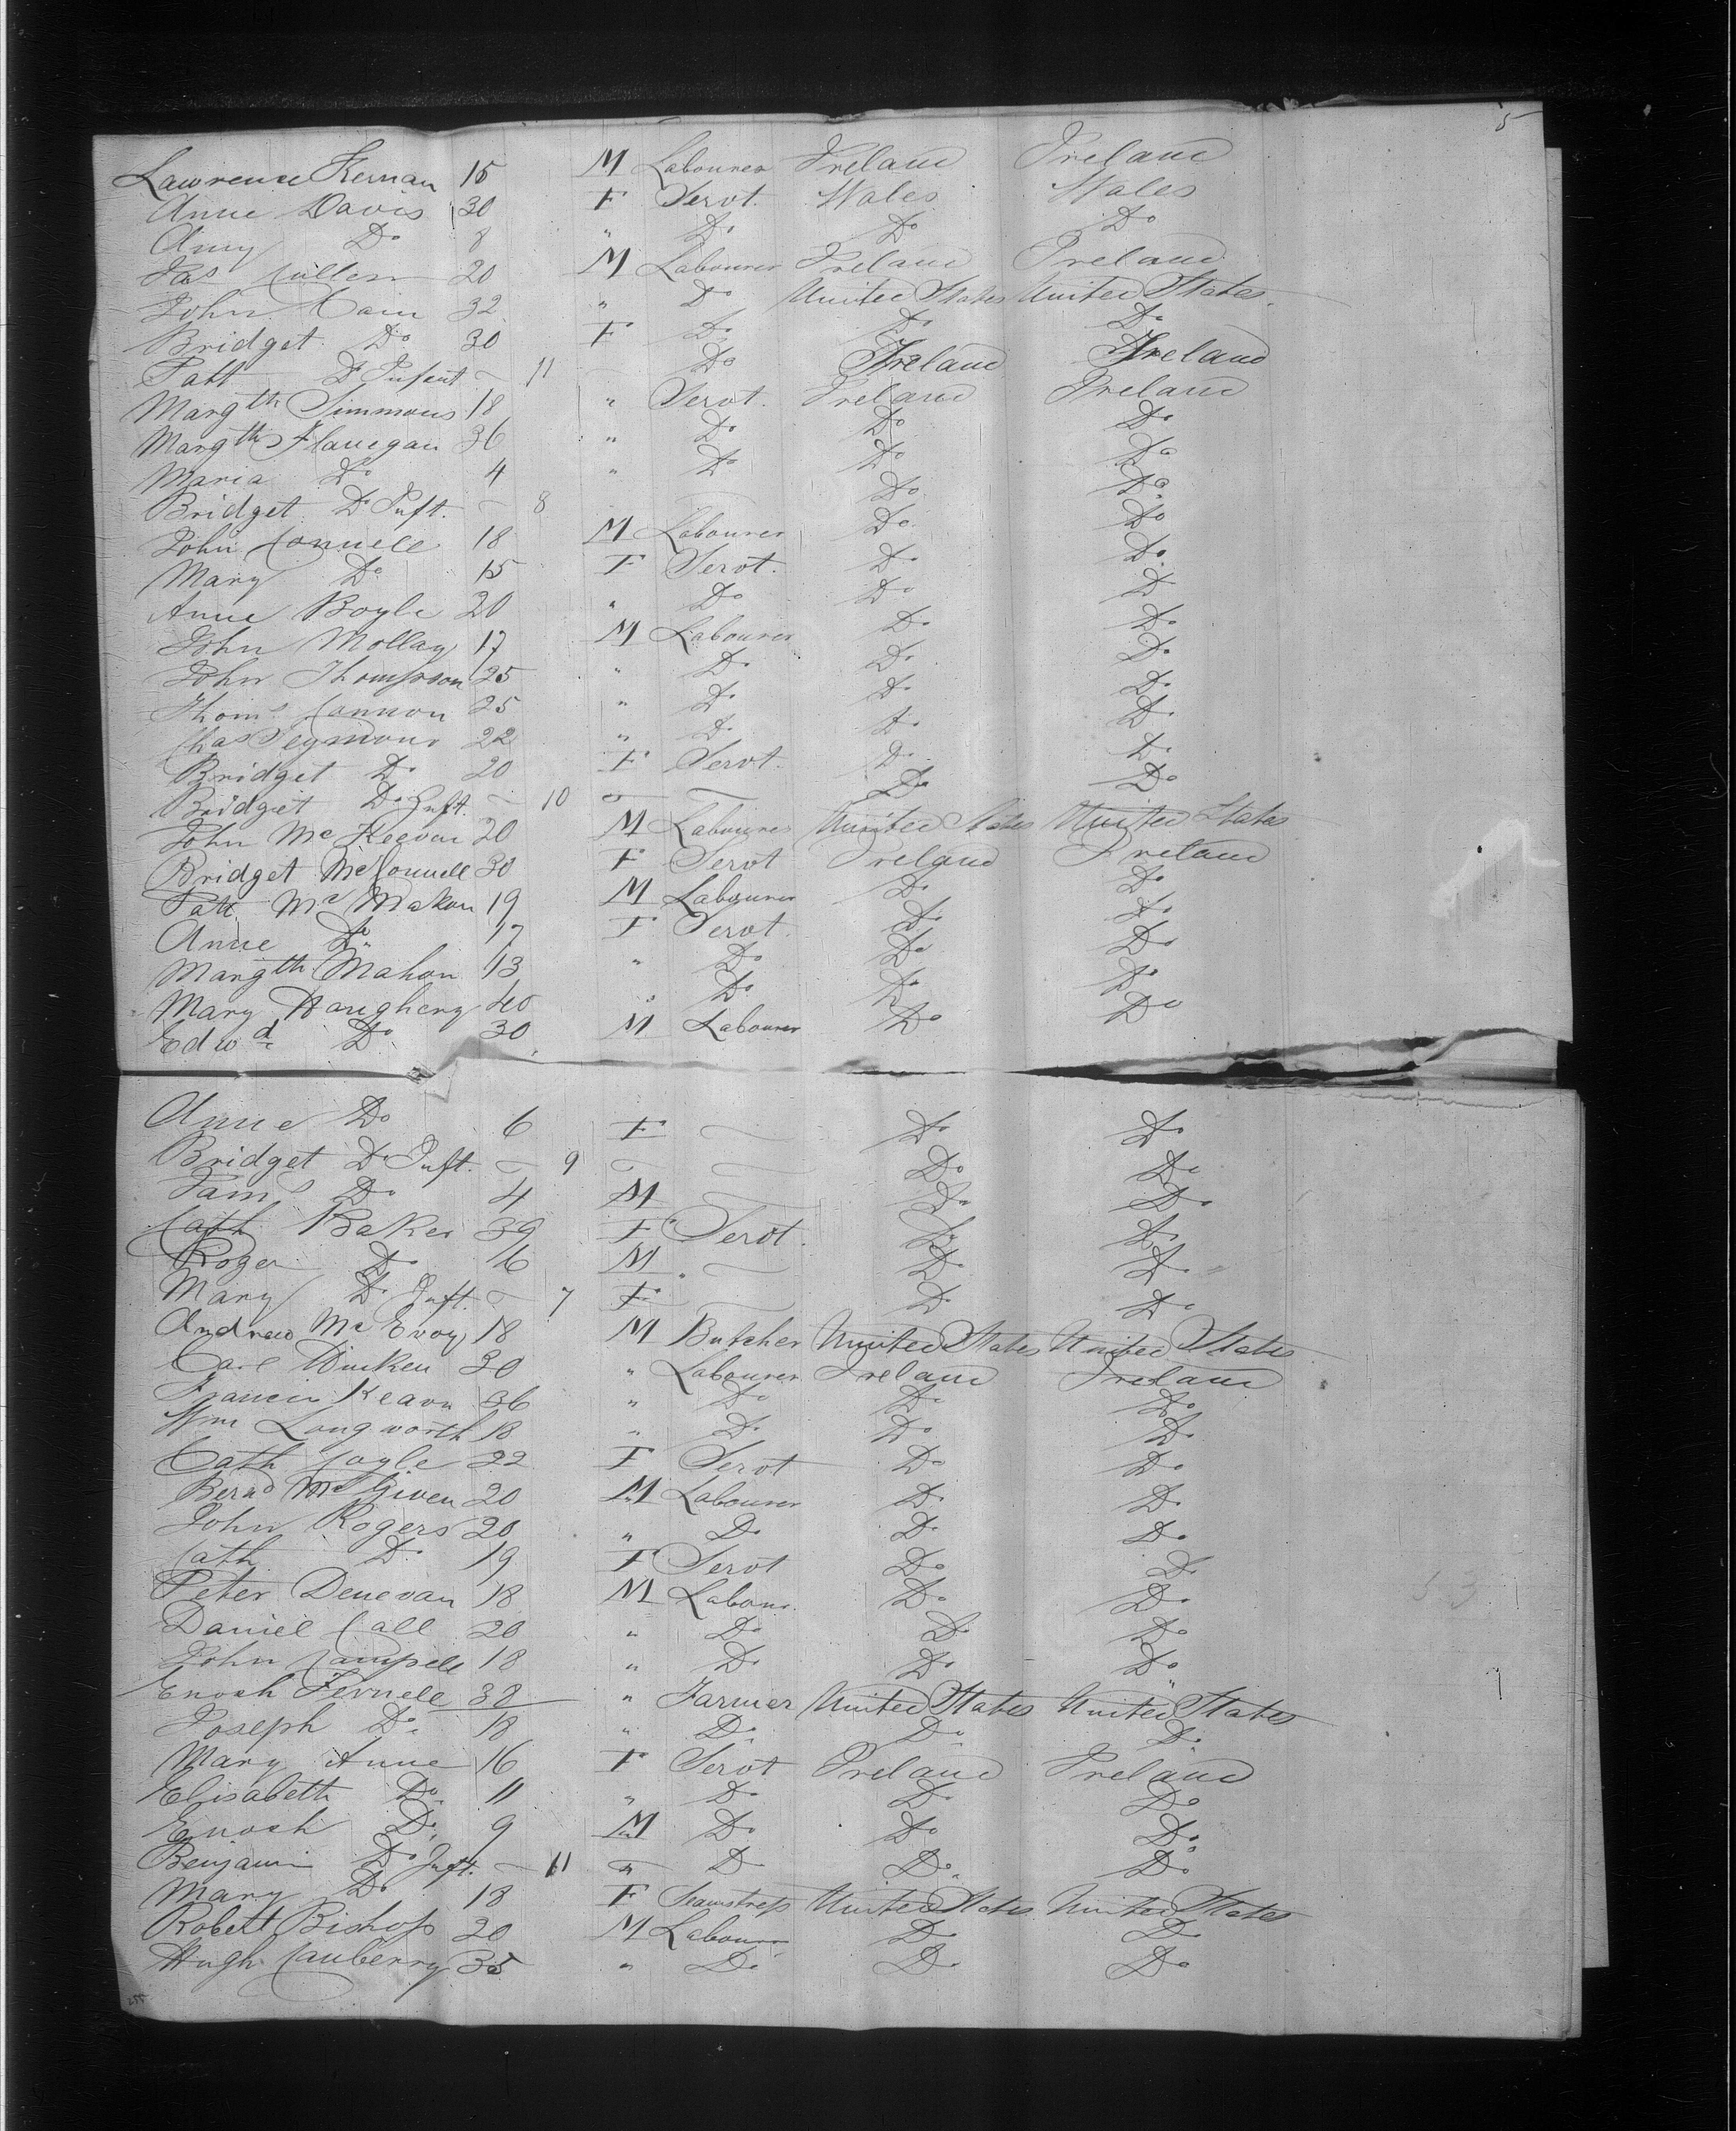 5
Lawrence Kernan 15 M Labourer Ireland Ireland
Anne Davis 30 F Servt. Wales Wales
Amy Do 8 " Do Do Do
Jas Cullen 20 M Labourer Ireland Ireland
John Cain 32 " Do United States United States
Bridget Do 30 F Do Do Do
Patt Do Infent - 11 - Do Ireland Ireland
Margth Simmons 18 " Servt. Ireland Ireland
Margth Flanegan 36 " Do Do Do
Maria Do 4 " Do Do Do
Bridget Do Inft. - 8 Do Do
John Connell 18 M Labourer Do Do
Mary Do 15 F Servt. Do Do
Anne Boyle 20 " Do Do Do
John Mollay 17 M Labourer Do Do
John Thompson 25 " Do Do Do
Thoms Cannon 25 " Do Do Do
Chas Seymour 22 " Do Do Do
Bridget Do 20 F Servt. Do Do
Bridget Do Inft. - 10 - - Do Do
John Mc Keevan 20 M Labourer United States United States
Bridget McConnell 30 F Servt Ireland Ireland
Patt Mc Mahon 19 M Labourer Do Do
Anne Do 17 F Servt. Do Do
Margth Mahon 13 " Do Do Do
Mary Haughery 40 " Do Do Do
Edwd Do 30 M Labourer Do Do
Anne Do 6 F - Do Do
Bridget Do Inft. - 9 - - Do Do
Jams Do 4 M - Do Do
Cath Baker 39 F Servt. Do Do
Roger Do 16 M " - Do Do
Mary Do Inft. - 7 F - Do Do
Andrew Mc Evoy 18 M Butcher United States United States
Carl Dinken 30 " Labourer Ireland Ireland
Francis Keavn 36 " Do Do Do
Wm Longworth 18 " Do Do Do
Cath Coyle 22 F Servt Do Do
Bernd McGiven 20 M Labourer Do Do
John Rogers 20 " Do Do Do
Cath Do 19 F Servt Do Do
Peter Denevan 18 M Labour. Do Do
Daniel Call 20 " Do Do Do
John Campell 18 " Do Do Do
Enosh Fernell 38 " Farmer United States United States
Joseph Do 18 " Do Do Do
Mary Anne 16 F Servt Ireland Ireland
Elisabeth Do 11 " Do Do Do
Enosh Do 9 M Do Do Do
Benjamin Do Inft. - 11 " Do Do Do
Mary Do 18 F Seamstress United States United States
Robett Bishop 20 M Labourr Do Do
Hugh Cauberry 35 " Do Do Do